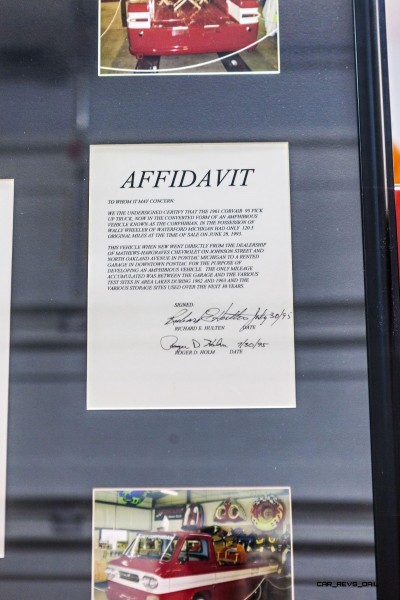 AFFIDAVIT
TO WHOM IT MAY CONCERN:
WE THE UNDERSIGNED CERTIFY THAT THE 1961 CORVAIR 95 PICK
UP TRUCK, NOW IN THE CONVERTED FORM OF AN AMPHIBIOUS
VEHICLE KNOWN AS THE CORPHIBIAN, IN THE POSSESSION OF
WALLY WHEELER OF WATERFORD MICHIGAN HAD ONLY 120.1
ORIGINAL MILES AT THE TIME OF SALE ON JUNE 28,
THIS VEHICLE WHEN NEW WENT DIRECTLY FROM THE DEALERSHIP
OF MATHEWS-HARGRAVES CHEVROLET ON JOHNSON STREET AND
NORTH OAKLAND AVENUE IN PONTIAC MICHIGAN TO A RENTED
GARAGE IN DOWNTOWN PONTIAC FOR THE PURPOSE OF
DEVELOPING AN AMPHIBIOUS VEHICLE. THE ONLY MILEAGE
ACCUMULATED WAS BETWEEN THE GARAGE AND THE VARIOUS
TEST SITES IN AREA LAKES DURING 1962 AND 1963 AND THE
VARIOUS STORAGE SITES USED OVER THE NEXT 30 YEARS
SIGNED:
Richard E Hulten July 30/95
RICHARD E. HULTEN DATE
Roger D. Holm 7/30/95
ROGER D. HOLM DATE